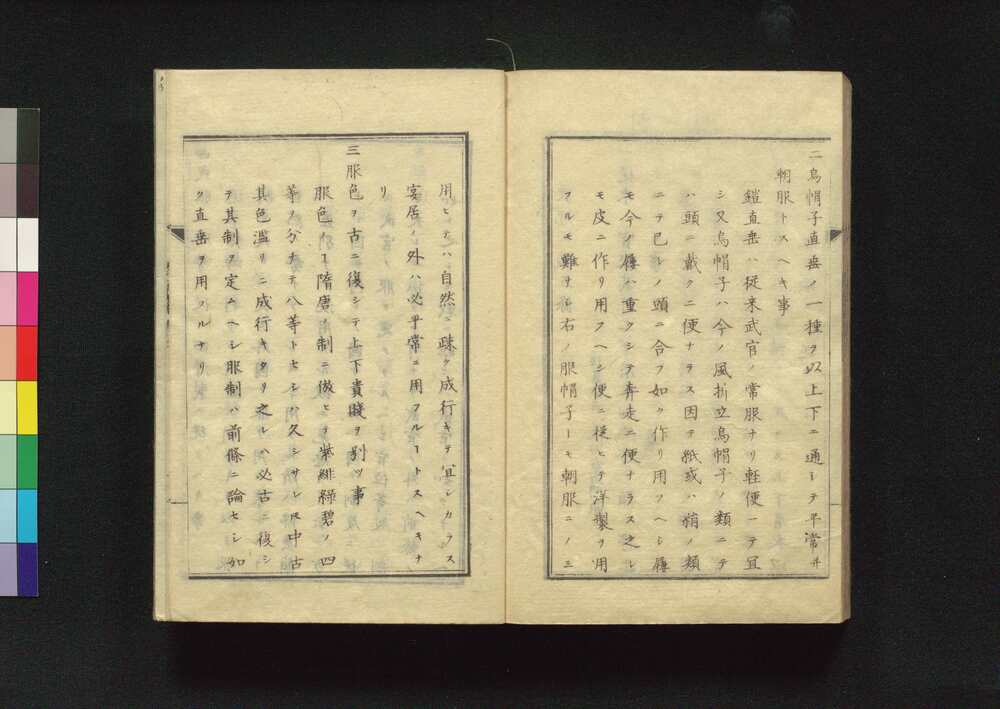 二烏帽子直垂ノ一種ヲ以上下ニ通シテ平常并
朝服トスヘキ事
鎧直垂ハ従来武官ノ常服ナリ軽便ニテ宜
シ又烏帽子ハ今ノ風折立烏帽子ノ類ニテ
ハ頭ニ戴クニ便ナラス因テ紙或ハ絹ノ類
ニテ巳レノ頭ニ合フ如ク作リ用フヘシ履
モ今ノ履ハ重クシテ奔走ニ便ナラス之レ
モ皮ニ作リ用フヘシ便ニ従ヒテ洋製ヲ用
フルモ難ナシ右ノ服帽子ーモ朝服ニノミ
用ヒテハ自然ニ疎ク成行キテ宜シカラス
宴居ノ外ハ必乎常ニ用フルヿトスヘキナ
リ
三服色ヲ古ニ復シテ上下貴賤ヲ別ツ事
服色ノヿ隋唐ノ制ニ倣ヒテ紫緋緑碧ノ四
等ノ分チテ八等トセシ所久シサレ𪜈中古
其色濫リニ成行キタリ之レハ必古ニ復シ
テ其制ヲ定ムヘシ服制ハ前條ニ論セシ如
ク直垂ヲ用フルナリ